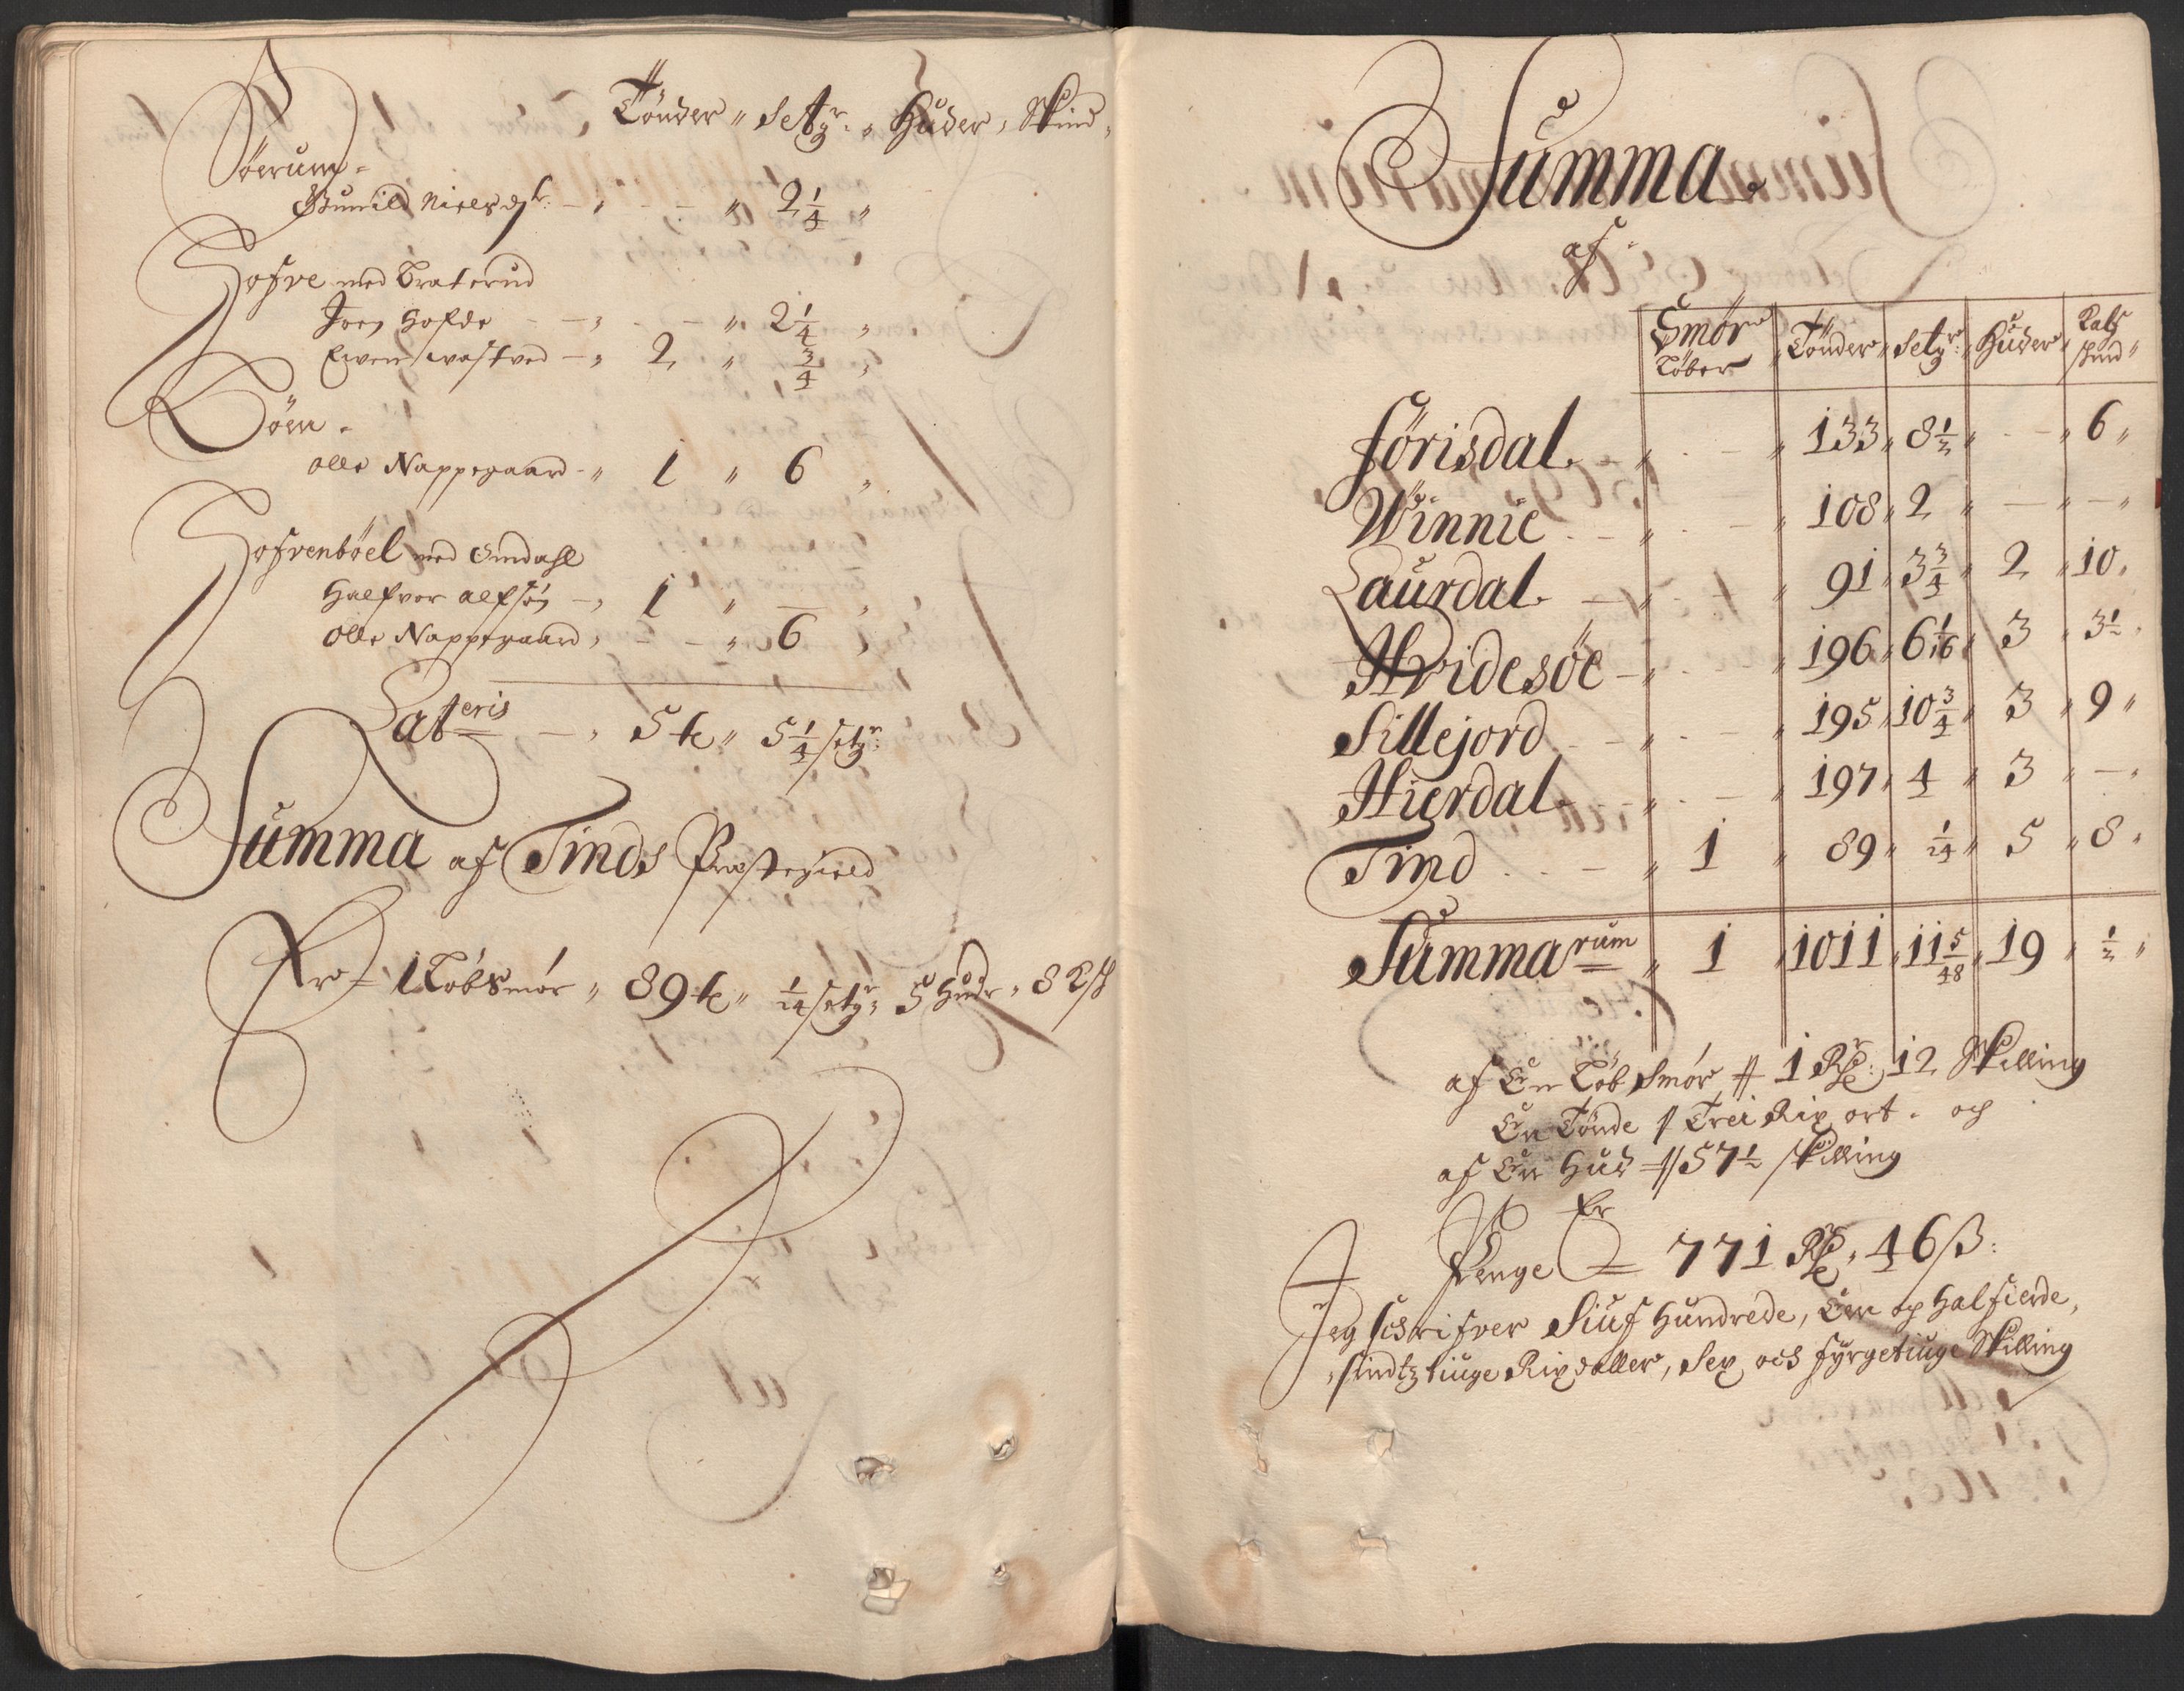 Tönder " Setgr. " Huder, Skind
Söerum.
Gunild Nielsdtr. - " - - " 2 1/4 "
Hofve med Braterud
Joen Hofde - - " - - " 2 1/4 "
Ewen - " 2 " 3/4 "
Böen.
Olle Nappegaard - " 1 " 6 "
Hofvenböel med Omdahl
Halfvor Alfsön - " 1 " — "
Olle Nappegaard, - - " 6 "
Lateris - " 5 tr " 5 1/4 setgr:
Summa af Tinds Præstegield
Er - 1 Löbsmör " 89 tr " 1/24 setgr: 5 Hudr " 8 Kß
Summa
af
Smör Löber " Tönder " Setgr: " Huder " Kalfskind "
Förisdal. - " . - " 133 " 8 1/2 " . - " 6 "
Winnie . - " . - " 108 " 2 " — " — "
Laurdal. - " . - " 91 " 3 3/4 " 2 " 10 "
Hvidesöe - " . - " 196 " 6 1/16 " 3 " 3 1/2 "
Sillejord - - " . - " 195 " 10 3/4 " 3 " 9 "
Hierdal. - - " . - " 197 " 4 " 3 " — "
Tind . . - " 1 " 89 " 1/24 " 5 " 8 "
Summarum " 1 " 1011 " 11 5/48 " 19 " 1/2 "
af En Löb Smör // 1 Rdr: 12 Skilling
En Tönde // Trei Rix ort. och
af En Hud // 57 1/2 Skilling
Er
Penge = 771 Rdr, 46 ß:
Jeg schrifver Siuf Hundrede, Een och Halfierde,
sindtztiuge Rixdaller, Sex och fyrgetiuge Skilling